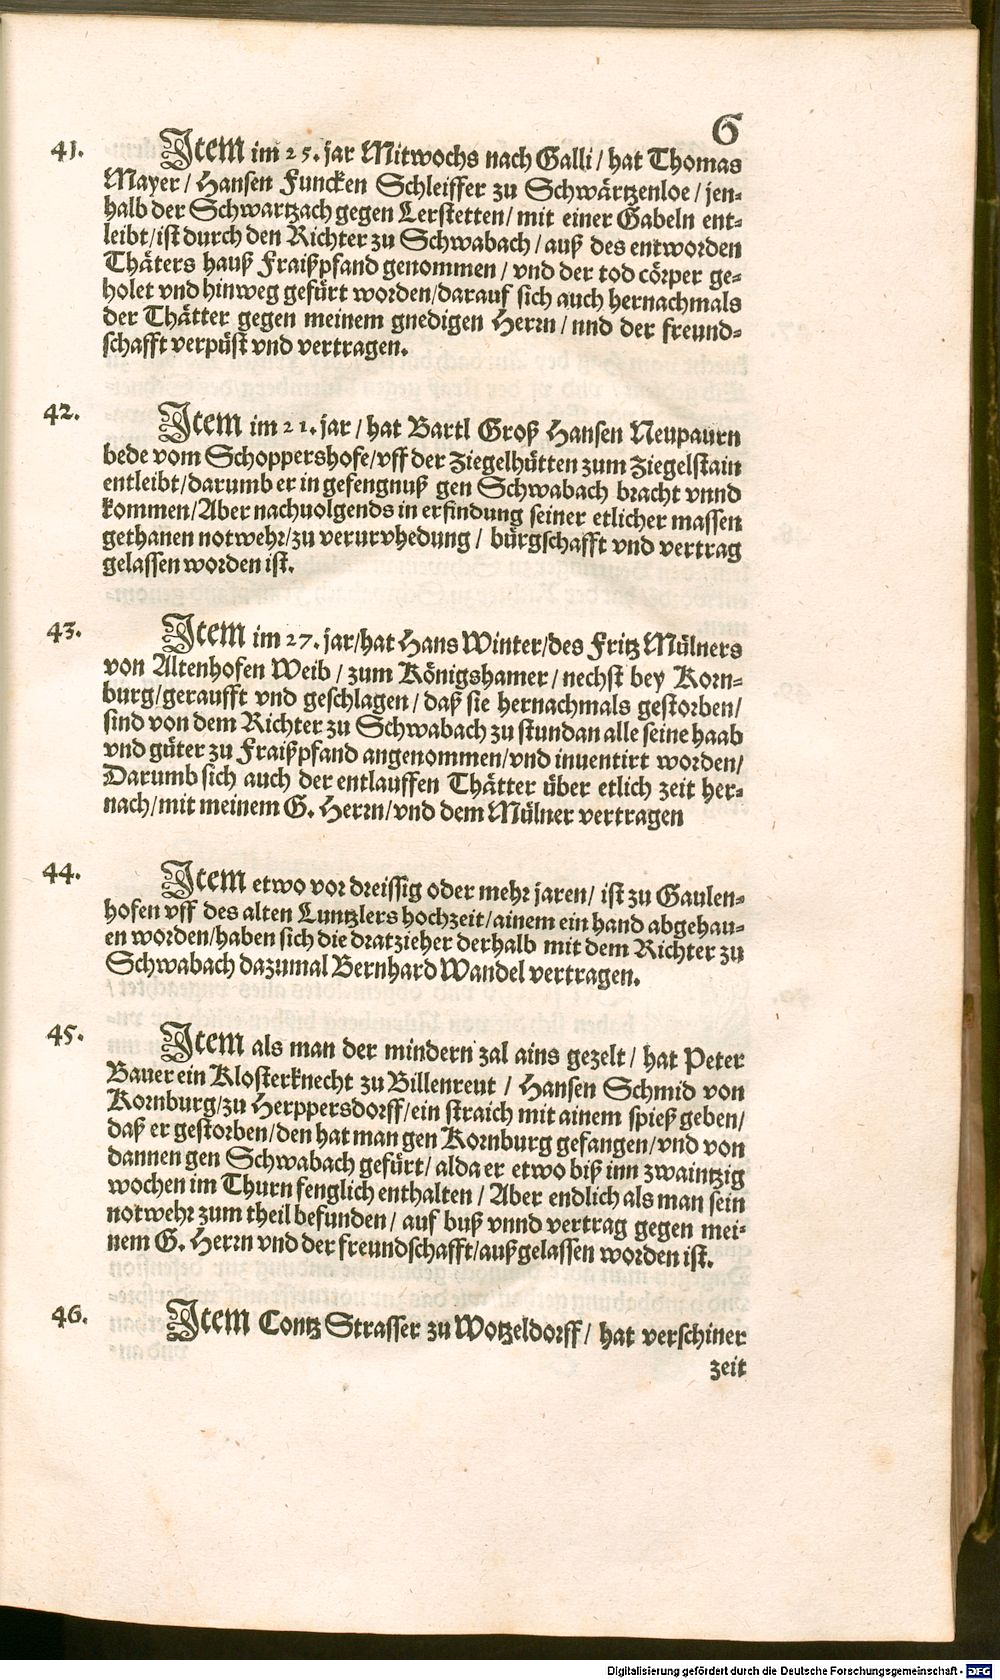 G
41. Item im 25. jar Mitwochs nach Galli / hat Thomas
Mayer / Hansen Funcken Schleiffer zu Schwärtzenloe / jen-
halb der Schwartzach gegen Lerstetten / mit einer Gabeln ent-
leibt / ist durch den Richter zu Schwabach / auß des entworden
Thäters hauß Fraißpfand genommen / vnd der tod cörper ge-
holet vnd hinweg gefürt worden / darauf sich auch hernachmals
der Thätter gegen meinem gnedigen Herrn / vnd der freund-
schafft verpüst vnd vertragen.
42. Item im 21. jar / hat Bartl Groß Hansen Neupaurn
bede vom Schoppershofe / vff der Ziegelhütten zum Ziegelstain
entleibt / darumb er in gefengnuß gen Schwabach bracht vnnd
kommen / Aber nachuolgends in erfindung seiner etlicher massen
gethanen notwehr / zu verurvhedung / bürgschafft vnd vertrag
gelassen worden ist.
43. Item im 27. jar / hat Hans Winter / des Fritz Mülners
von Altenhofen Weib / zum Königshamer / nechst bey Korn-
burg / geraufft vnd geschlagen / daß sie hernachmals gestorben /
sind von dem Richter zu Schwabach zu stundan alle seine haab
vnd güter zu Fraißpfand angenommen / vnd inuentirt worden /
Darumb sich auch der entlauffen Thätter über etlich zeit her-
nach / mit meinem G. Herrn / vnd dem Mülner vertragen
44. Item etwo vor dreissig oder mehr jaren / ist zu Gaulen-
hofen vff des alten Luntzlers hochzeit / ainem ein hand abgehau-
en worden / haben sich die dratzieher derhalb mit dem Richter zu
Schwabach dazumal Bernhard Wandel vertragen.
45. Item als man der mindern zal ains gezelt / hat Peter
Bauer ein Klosterknecht zu Billenreut / Hansen Schmid von
Kornburg / zu Herppersdorff / ein straich mit ainem spieß geben /
daß er gestorben / den hat man gen Kornburg gefangen / vnd von
dannen gen Schwabach gefürt / alda er etwo biß inn zwaintzig
wochen im Thurn fenglich enthalten / Aber endlich als man sein
notwehr zum theil befunden / auf buß vnnd vertrag gegen mei-
nem G. Herrn vnd der freundschafft / außgelassen worden ist.
46. Item Contz Strasser zu Wotzeldorff / hat verschiner
zeit
Digitalisierung gefördert durch die Deutsche Forschungsgemeinschaft - DFG